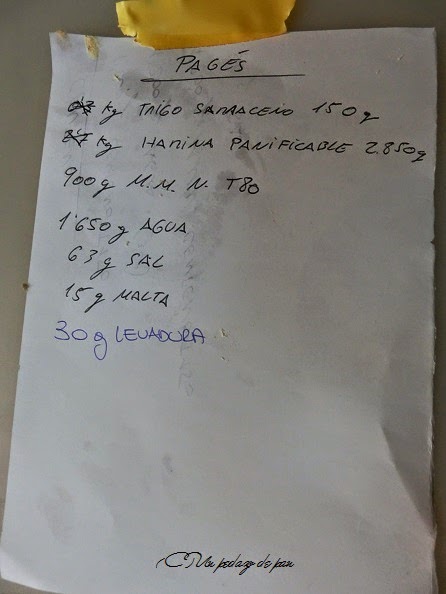 PAGÉS
kg TRIGO SARRACENO 150g
kg HARINA PANIFICABLE 2.850g
900g M.M.N. T80
1'650g AGUA
63g SAL
15g MALTA
30g LEVADURA
Un pedazo de pan